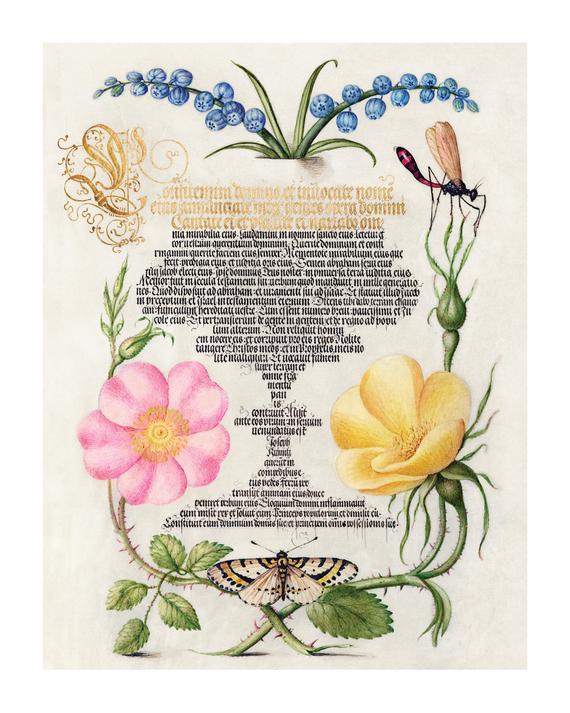 Confitemini domino et invocate nomē
eius annunciate inter gentes opera domini
Cantate ei et psallite ei narrate om
nia mirabilia eius Laudemini in nomine sancto eius letetur
cor querentium dominum. Querite dominum et confi
rmamini querite faciem eius semper Mementote mirabilium eius que
fecit prodigia eius et iuditia oris eius Semen abraham serui eius
filij Jacob electi eius. Ipse dominus Deus noster in universa terra iuditia eius
Memor fuit in secula testamenti sui verbum quod mandavit in mille generatio
nes Quod disposuit ad abraham et iuramenti sui ad Isaac Et statuit illud Jacob
in preceptum et Israel in testamentum eternum Dicens tibi dabo terram chana
an funiculum hereditatis vestre Cum essent numero brevi paucissimi et In
cole eius Et pertransierunt de gente in gentem et de regno ad popu
lum alterum Non reliquit homin
em nocere eis et corripuit pro eis reges Nolite
tangere Christos meos et in Prophetis meis no
lite malignari Et vocavit famem
super terram et
omne
mentū
pan
is
contrivit Misit
ante eos virum in servum
venundatus est
Joseph
in
tus pedes ferrū
transijt animam eius donec
veniret verbum eius Eloquium domini inflammavit
eum misit rex et solvit eum Princeps populorum et dimisit eū
Constituit eum dominum domus sue et principem omnis possessionis sue